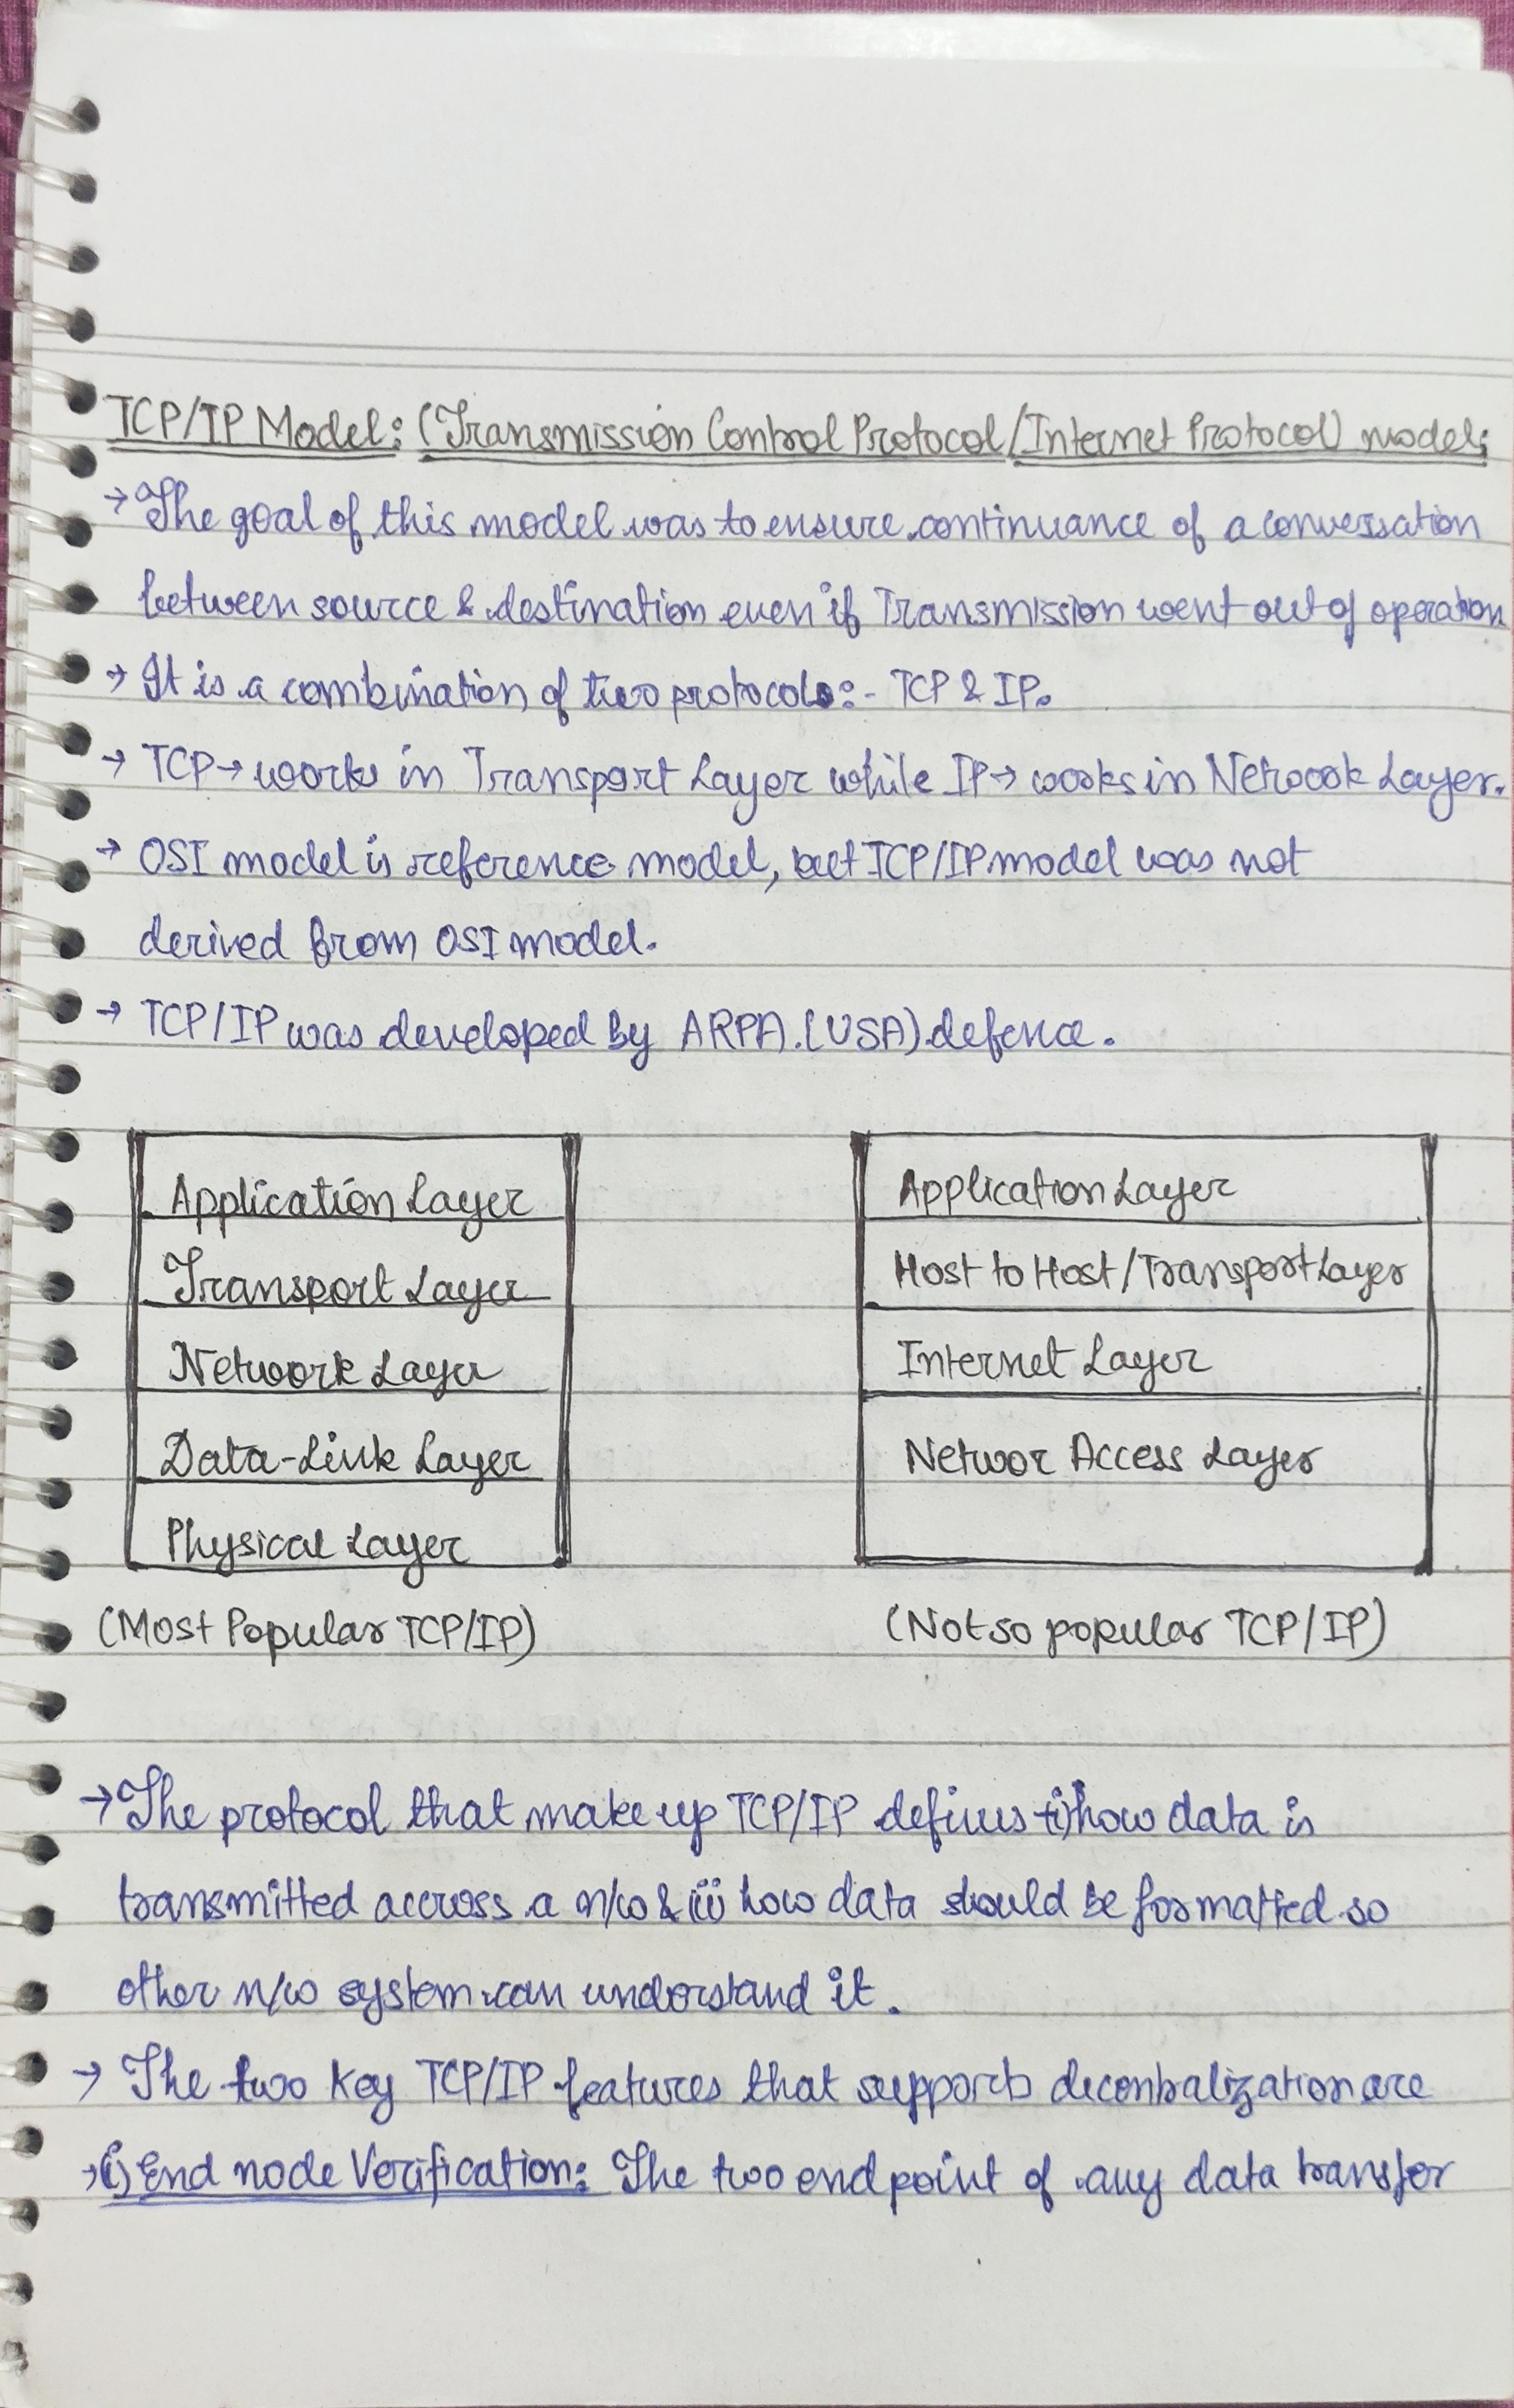 TCP/IP Model: (Transmission Control Protocol/Internet Protocol) model:
→ The goal of this model was to ensure continuance of a conversation
between source & destination even if Transmission went out of operation
→ It is a combination of two protocols:- TCP & IP.
→ TCP → works in Transport Layer while IP → works in Network Layer.
→ OSI model is reference model, but TCP/IP model was not
derived from OSI model.
→ TCP/IP was developed by ARPA (USA) defence.
Application Layer
Transport Layer
Network Layer
Data-Link Layer
Physical Layer
(Most Popular TCP/IP)
Application Layer
Host to Host/Transport Layer
Internet Layer
Networ Access Layer
(Not so popular TCP/IP)
→ The protocol that make up TCP/IP defines i) how data is
transmitted accross a n/w & ii) how data should be formatted so
other n/w system can understand it.
→ The two key TCP/IP features that supports decentralization are
→ (i) End node Verification: The two end point of any data transfer